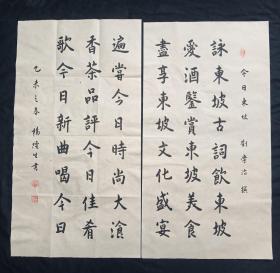 今日東坡 劉 治 撰
詠東坡古詞飲東坡
愛酒鑒賞東坡美食
盡享東坡文化盛宴
歌今日新曲喝今日
香茶品評今日佳肴
遍嘗今日時尚大湌
乙未之春 楊 生書